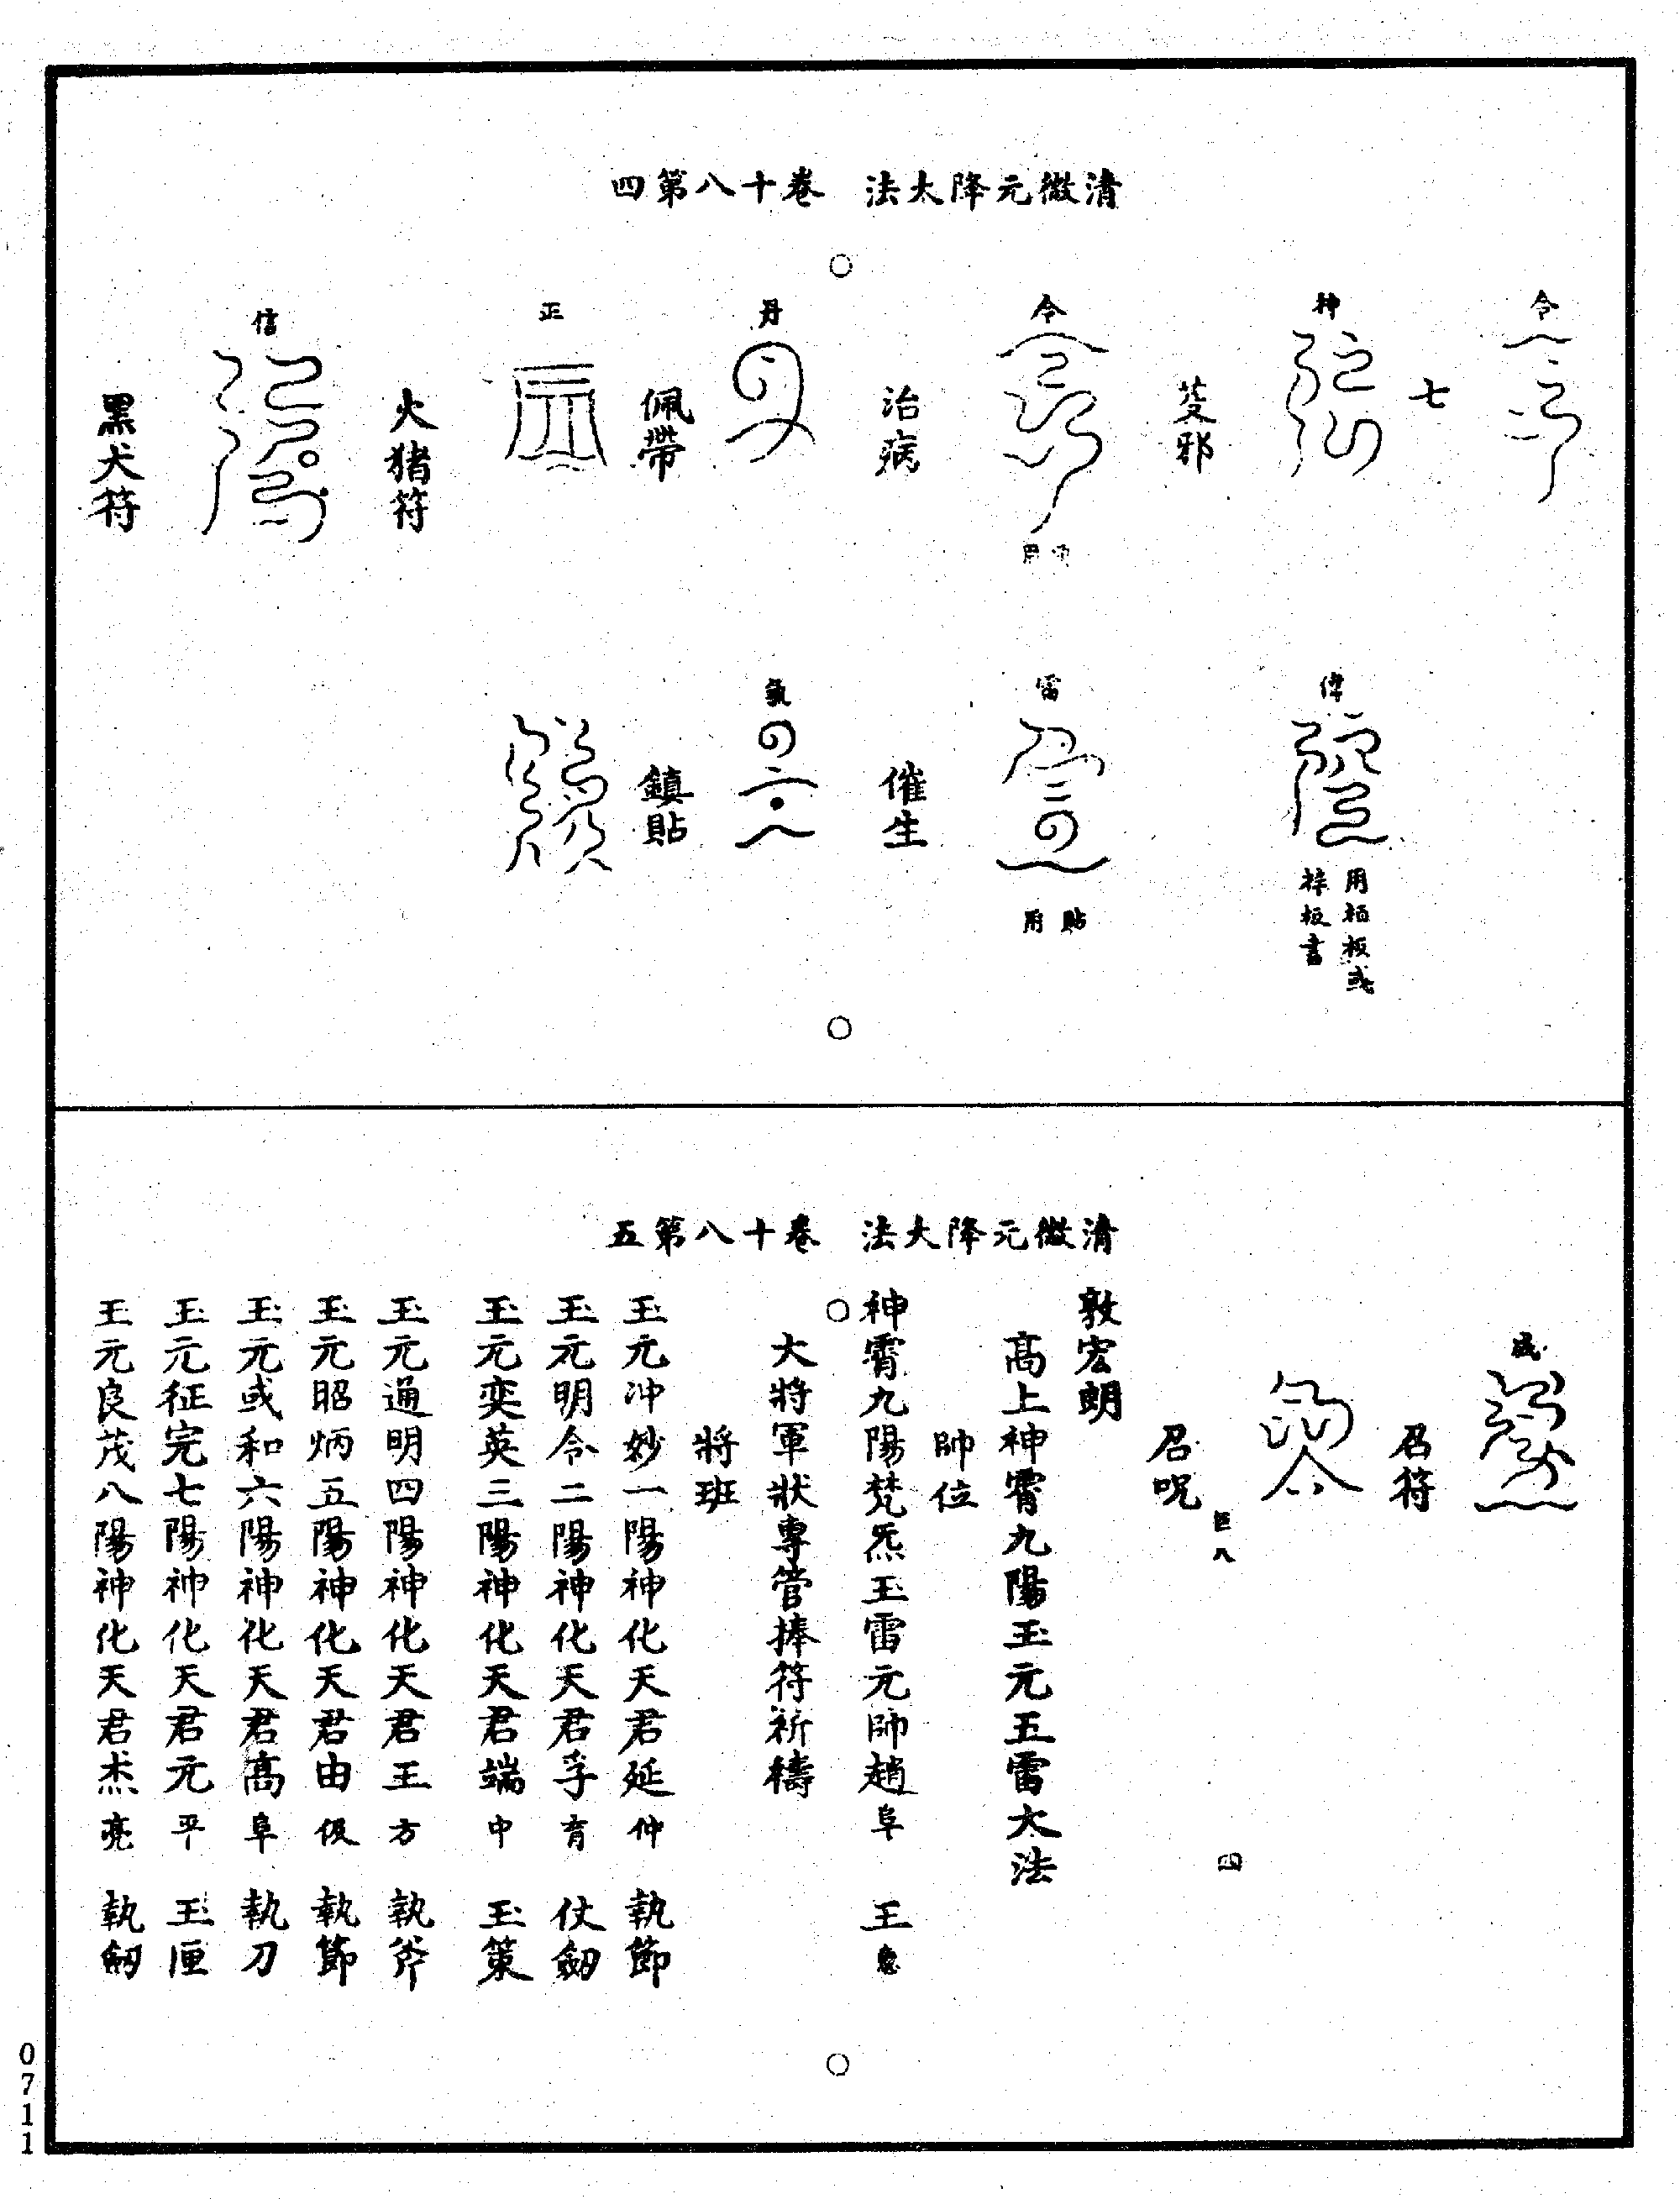 清微元降大法　卷十八第四
令
七
神
偉
用栢板或
梓板書
芟邪
令
雷
貼
用
治病
催生
丹
氣
佩帶
鎮貼
正
火猪符
信
黑犬符
清微元降大法　卷十八第五
召符
巨八
四
召呪
敦宏朗
高上神霄九陽玉元五雷大法
帥位
神霄九陽梵炁玉雷元帥趙阜　王惠
大將軍狀專管捧符祈禱
將班
玉元冲妙一陽神化天君延仲　執節
玉元明令二陽神化天君孚育　仗劒
玉元奕英三陽神化天君端中　玉策
玉元通明四陽神化天君王方　執斧
玉元昭炳五陽神化天君由伋　執節
玉元或和六陽神化天君高阜　執刀
玉元征完七陽神化天君元平　玉匣
玉元良茂八陽神化天君杰亮　執劒
0711